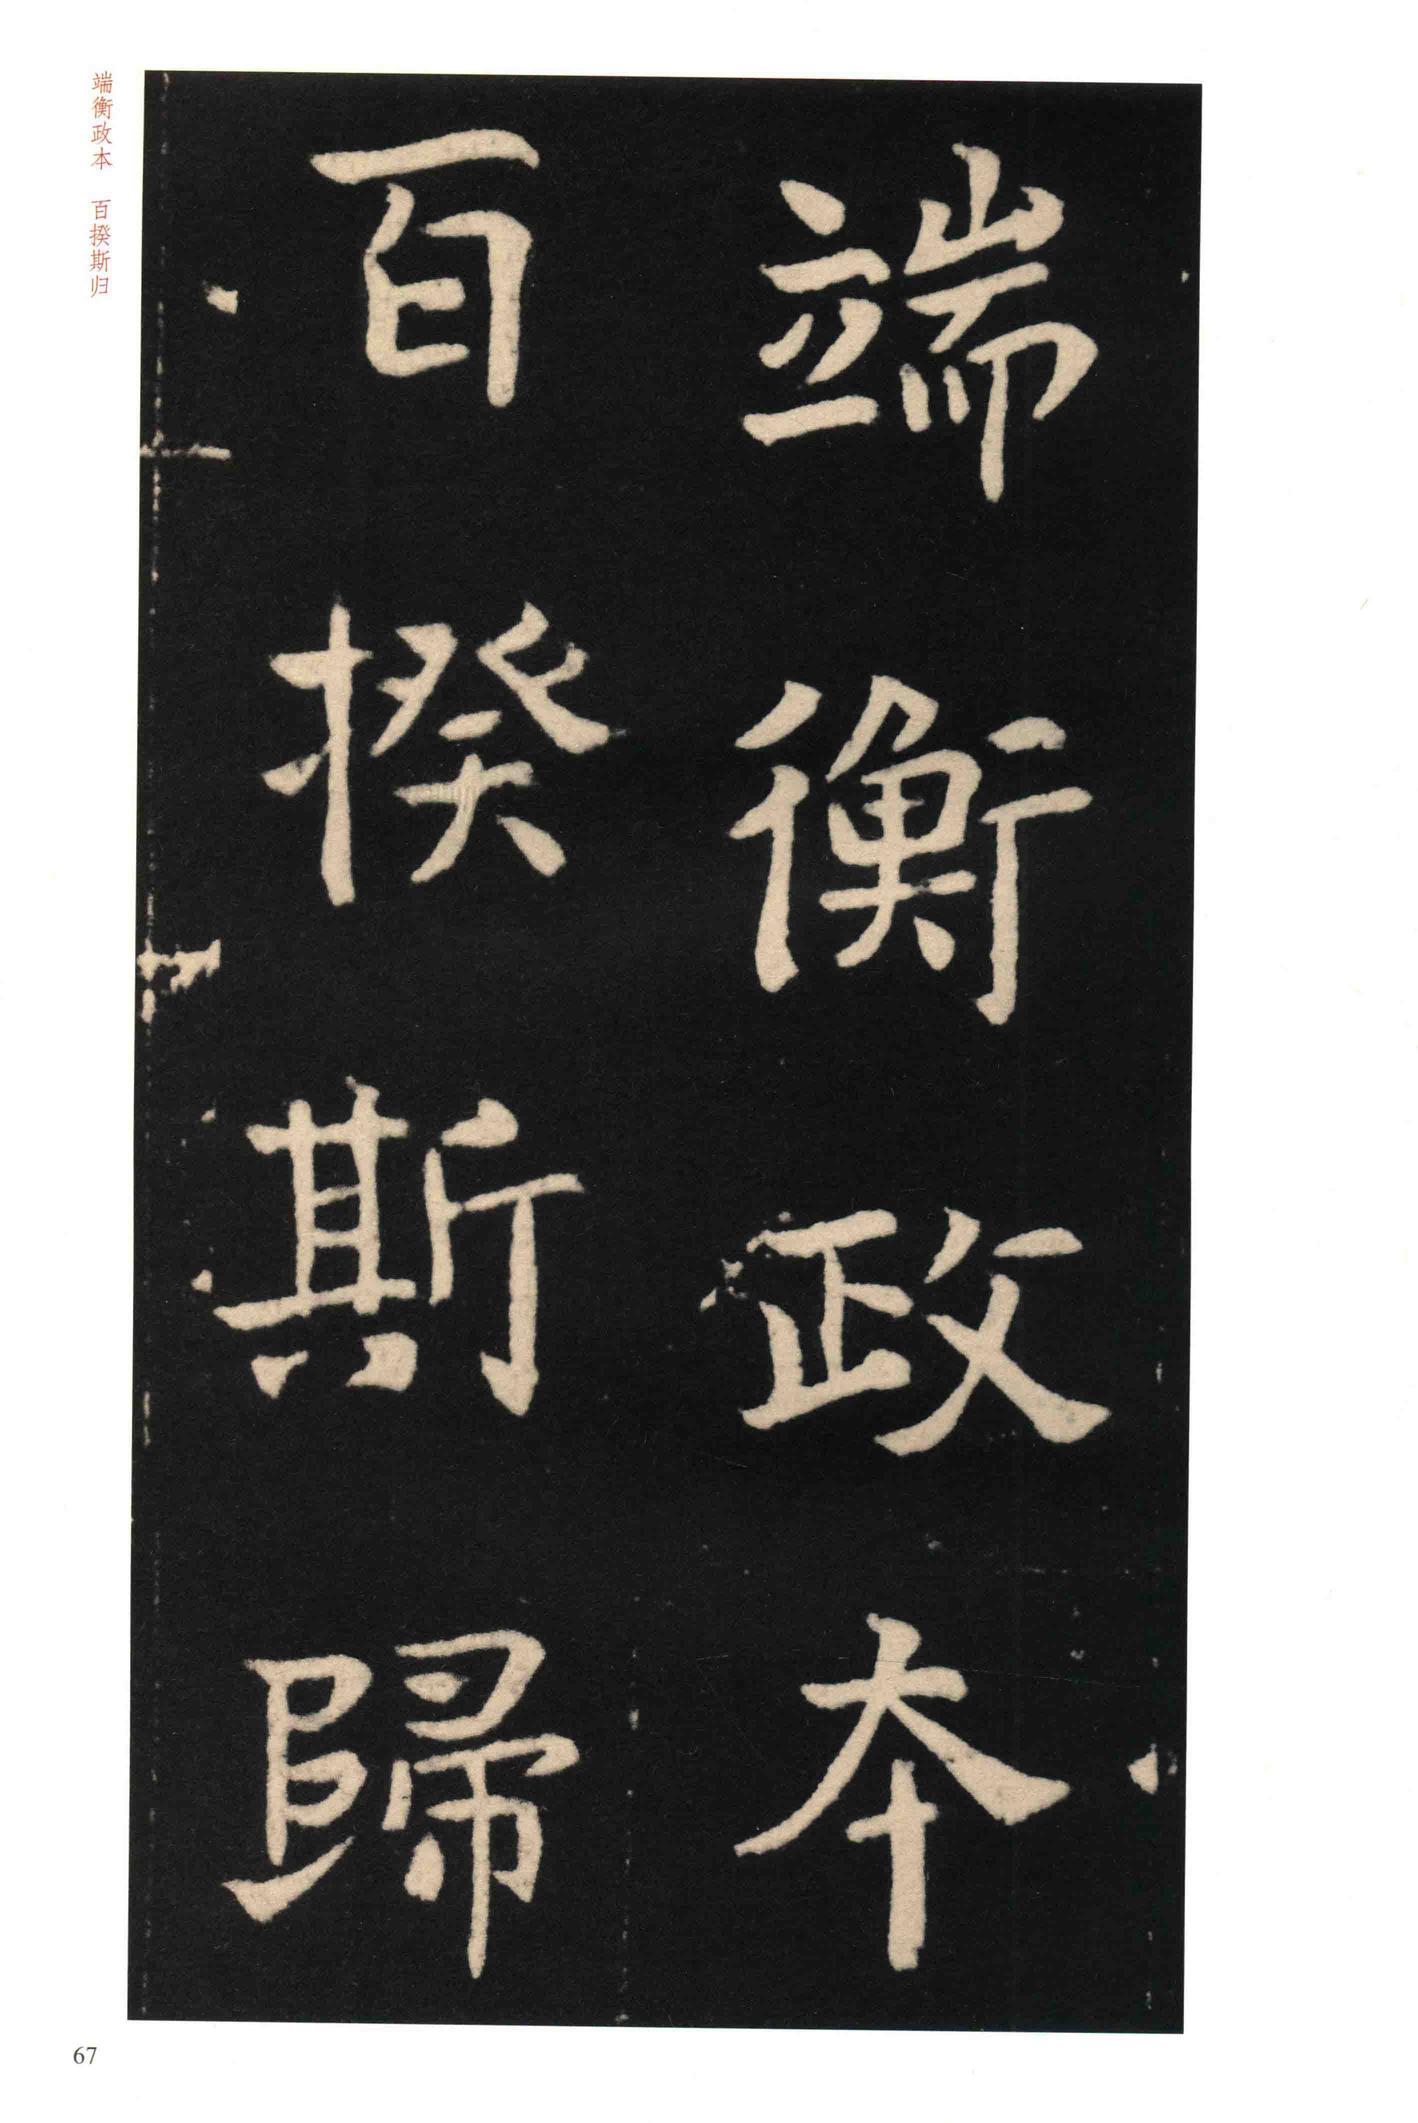 端衡政本
百揆斯歸
端衡政本　百揆斯归
67